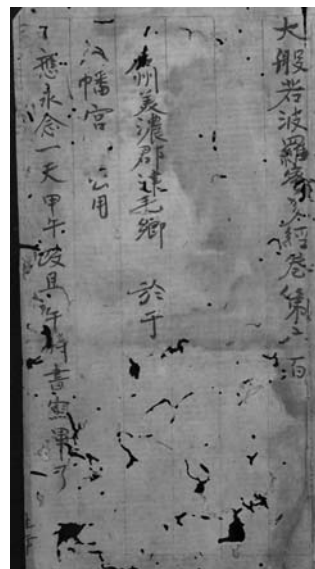 大般若波羅密多經卷第六百
州美濃郡毛郷 於于
八幡宮 公用
應永念一天甲午歳且午時書寫畢了